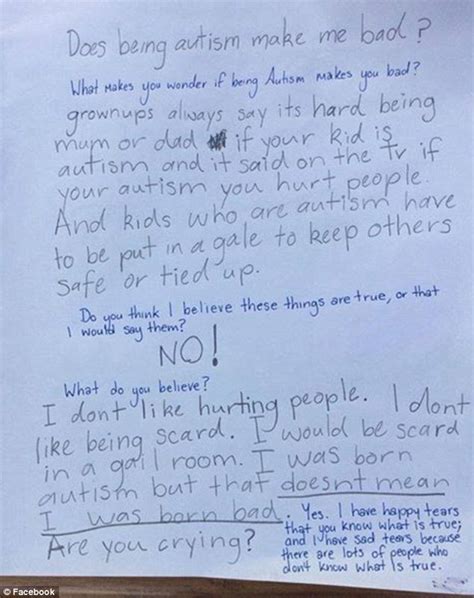 Does being autism make me bad?
What makes you wonder if being Autism makes you bad?
grownups always say its hard being
mum or dad if your kid is
autism and it said on the tv if
your autism you hurt people.
And kids who are autism have
to be put in a gale to keep others
safe or tied up.
Do you think I believe these things are true, or that
I would say them?
NO!
What do you believe?
I dont like hurting people. I dont
like being scard. I would be scard
in a gail room. I was born
autism but that doesnt mean
I was born bad.
Are you crying?
Yes. I have happy tears
that you know what is true;
and I have sad tears because
there are lots of people who
don't know what is true.
© Facebook